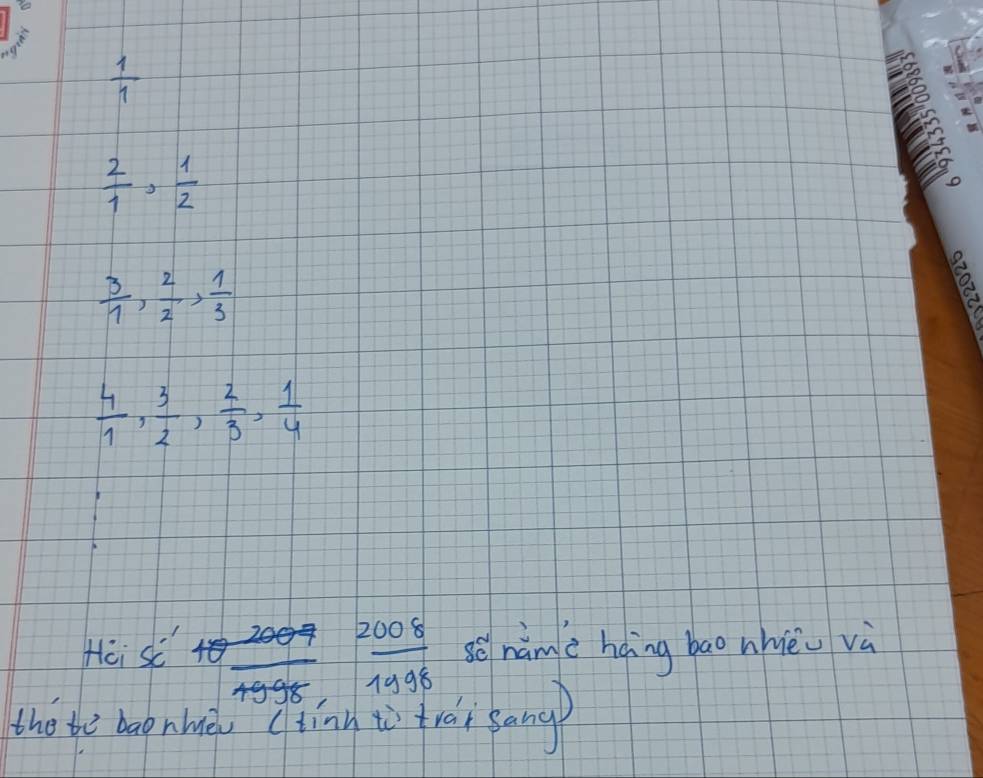 1/1
2/1, 1/2
3/1, 2/2, 1/3
4/1, 3/2, 2/3, 1/4
Hỏi số 2008/1998 sẽ nằm ở hàng bao nhiêu và
thứ tự bao nhiêu (tính từ trái sang)
6 934335 009893